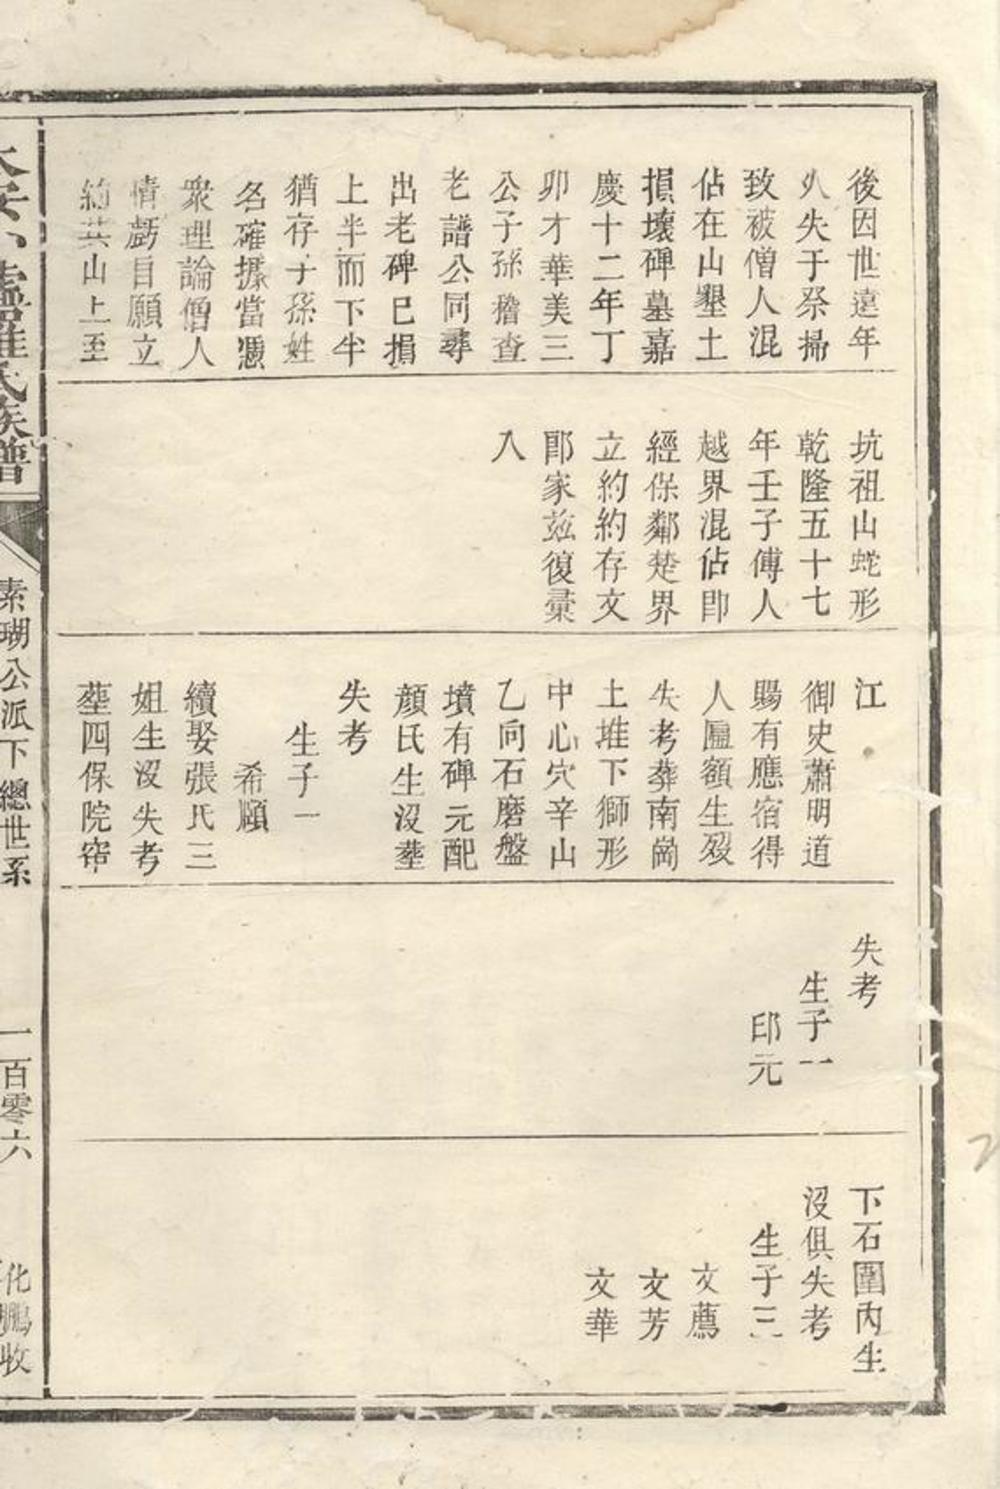 後因世遠年
久失于祭掃
致被僧人混
佔在山墾土
損壞碑墓嘉
慶十二年丁
卯才華美三
公子孫稽查
老譜公同尋
出老碑已損
上半而下半
猶存子孫姓
名確據當憑
衆理論僧人
情虧自願立
約其山上至
坑祖山蛇形
乾隆五十七
年壬子傅人
越界混佔即
經保鄰楚界
立約約存文
郎家茲復彙
入
江
御史蕭明道
賜有應宿得
人匾額生歿
失考葬南崗
土堆下獅形
中心穴辛山
乙向石磨盤
墳有碑元配
顏氏生沒塟
失考
生子一
希願
續娶張氏三
姐生沒失考
塟四保院帘
失考
生子一
印元
下石圍內生
沒俱失考
生子三
文薦
文芳
文華
羅氏族譜
素瑚公派下總世系
一百零六
化鵬收